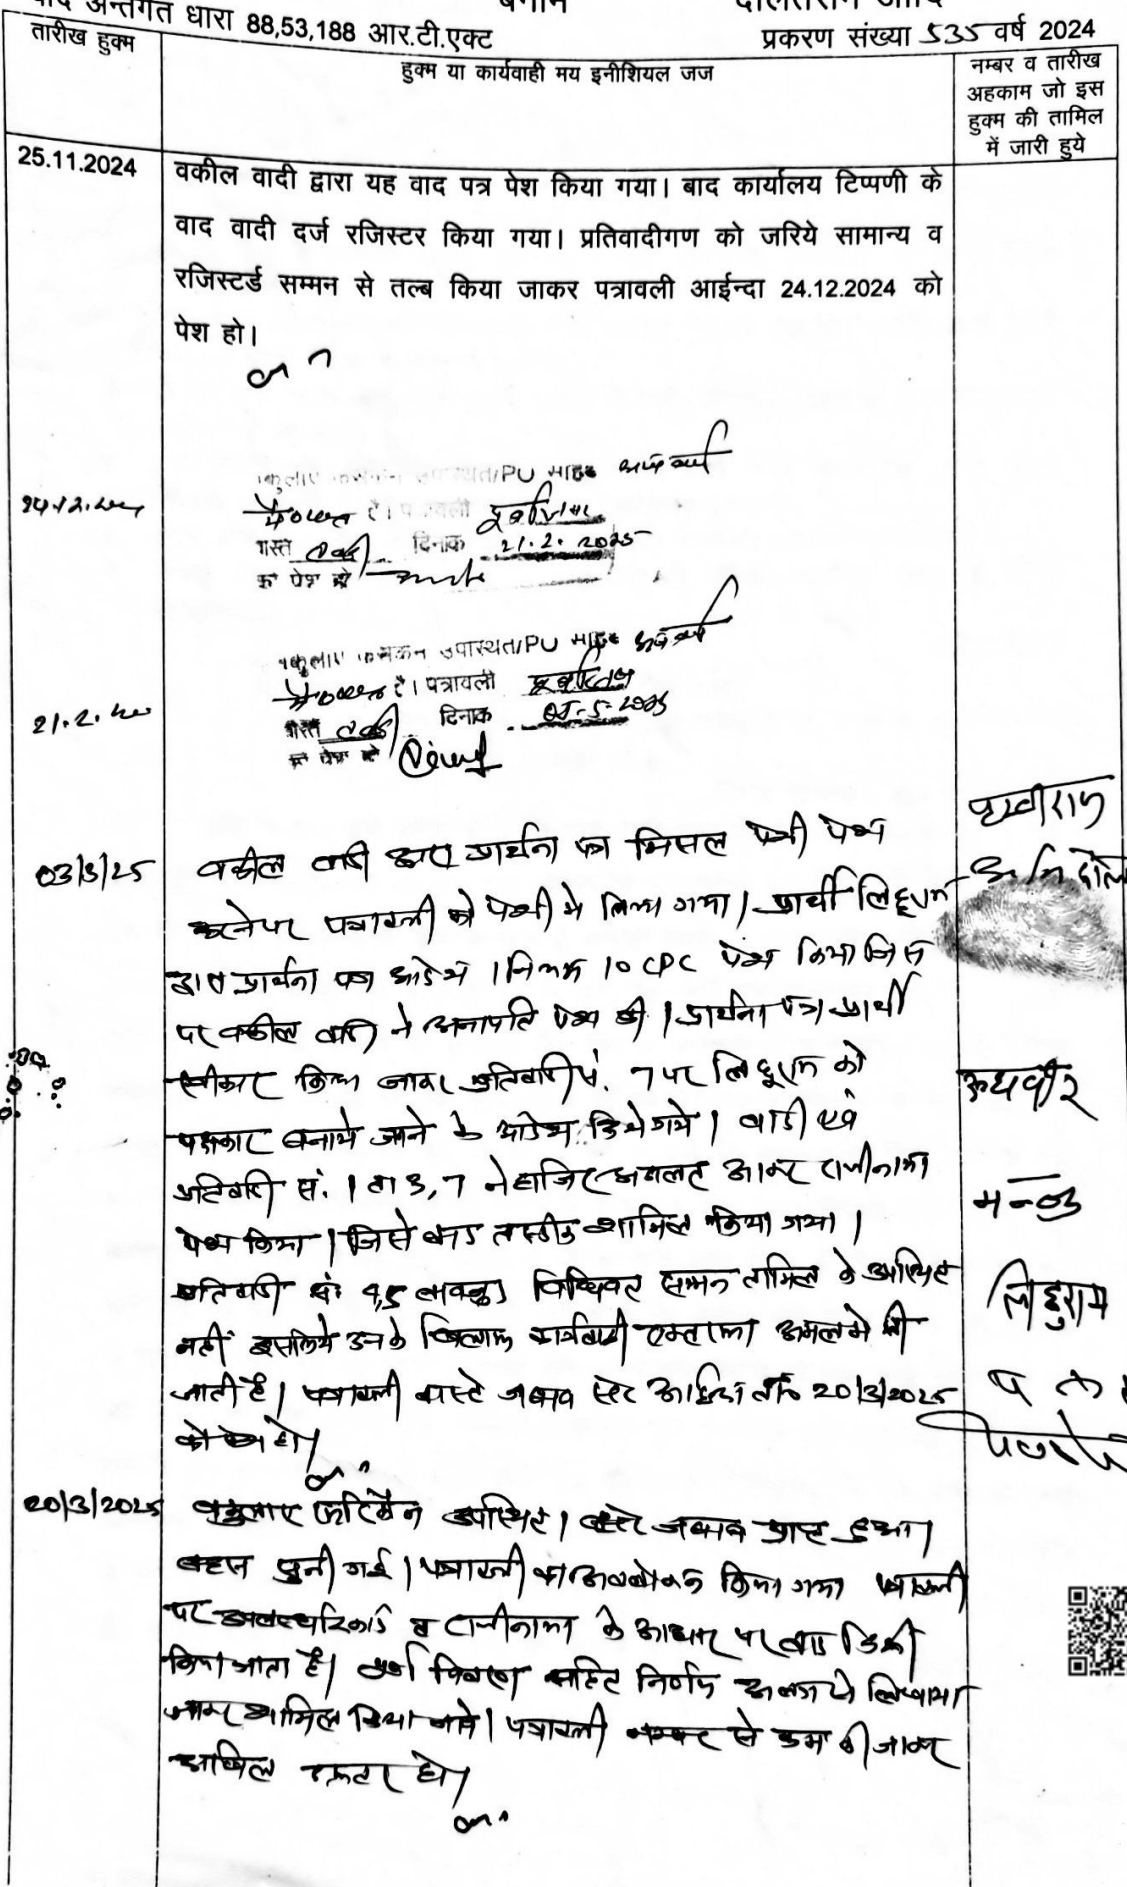 वाद अन्तर्गत धारा 88,53,188 आर.टी.एक्ट
बनाम
दौलतराम आदि
प्रकरण संख्या 535 वर्ष 2024
तारीख हुक्म
हुक्म या कार्यवाही मय इनीशियल जज
नम्बर व तारीख
अहकाम जो इस
हुक्म की तामिल
में जारी हुये
25.11.2024
वकील वादी द्वारा यह वाद पत्र पेश किया गया। बाद कार्यालय टिप्पणी के
वाद वादी दर्ज रजिस्टर किया गया। प्रतिवादीगण को जरिये सामान्य व
रजिस्टर्ड सम्मन से तल्ब किया जाकर पत्रावली आईन्दा 24.12.2024 को
पेश हो।
दिनाक 21.2.2025
को पेश हो
21.2.
उपस्थित/PU
है। पत्रावली
दिनाक
को पेश हो
03/3/25
वकील वादी द्वारा प्रार्थना पत्र मिसल पेशी पेश
करने पर पत्रावली को पेशी में लिया गया। प्रार्थी लिछुराम
द्वारा प्रार्थना पत्र आदेश 1 नियम 10 CPC पेश किया जिस
पर वकील वादी ने अनापति पेश की। प्रार्थना पत्र प्रार्थी
स्वीकार किया जाकर प्रतिवादी सं. 7 पर लिछुराम को
पक्षकार बनाये जाने के आदेश दिये गये। वादी एवं
प्रतिवादी सं. 1 ता 3, 7 ने हाजिर अदालत आकर राजीनामा
पेश किया। जिसे बाद तस्दीक शामिल किया गया।
प्रतिवादी सं. 4,5 बावजूद विधिवत सम्मन तामिल के उपस्थित
नहीं इसलिये उनके खिलाफ कार्यवाही एकतरफा अमल मे ली
जाती है। पत्रावली वास्ते जवाब स्टेट आईन्दा 20/3/2025
को पेश हो।
लिछुराम
20/3/2025
वकुलाए फरिकैन उपस्थित। स्टेट जवाब प्राप्त हुआ।
बहस सुनी गई। पत्रावली का अवलोकन किया गया पत्रावली
पर उपलब्ध रिकार्ड व राजीनामा के आधार पर वाद डिक्री
किया जाता है। पूर्ण विवरण सहित निर्णय अलग से लिखाया
जाकर शामिल किया जावे। पत्रावली नम्बर से कम की जाकर
दाखिल दफ्तर हो।